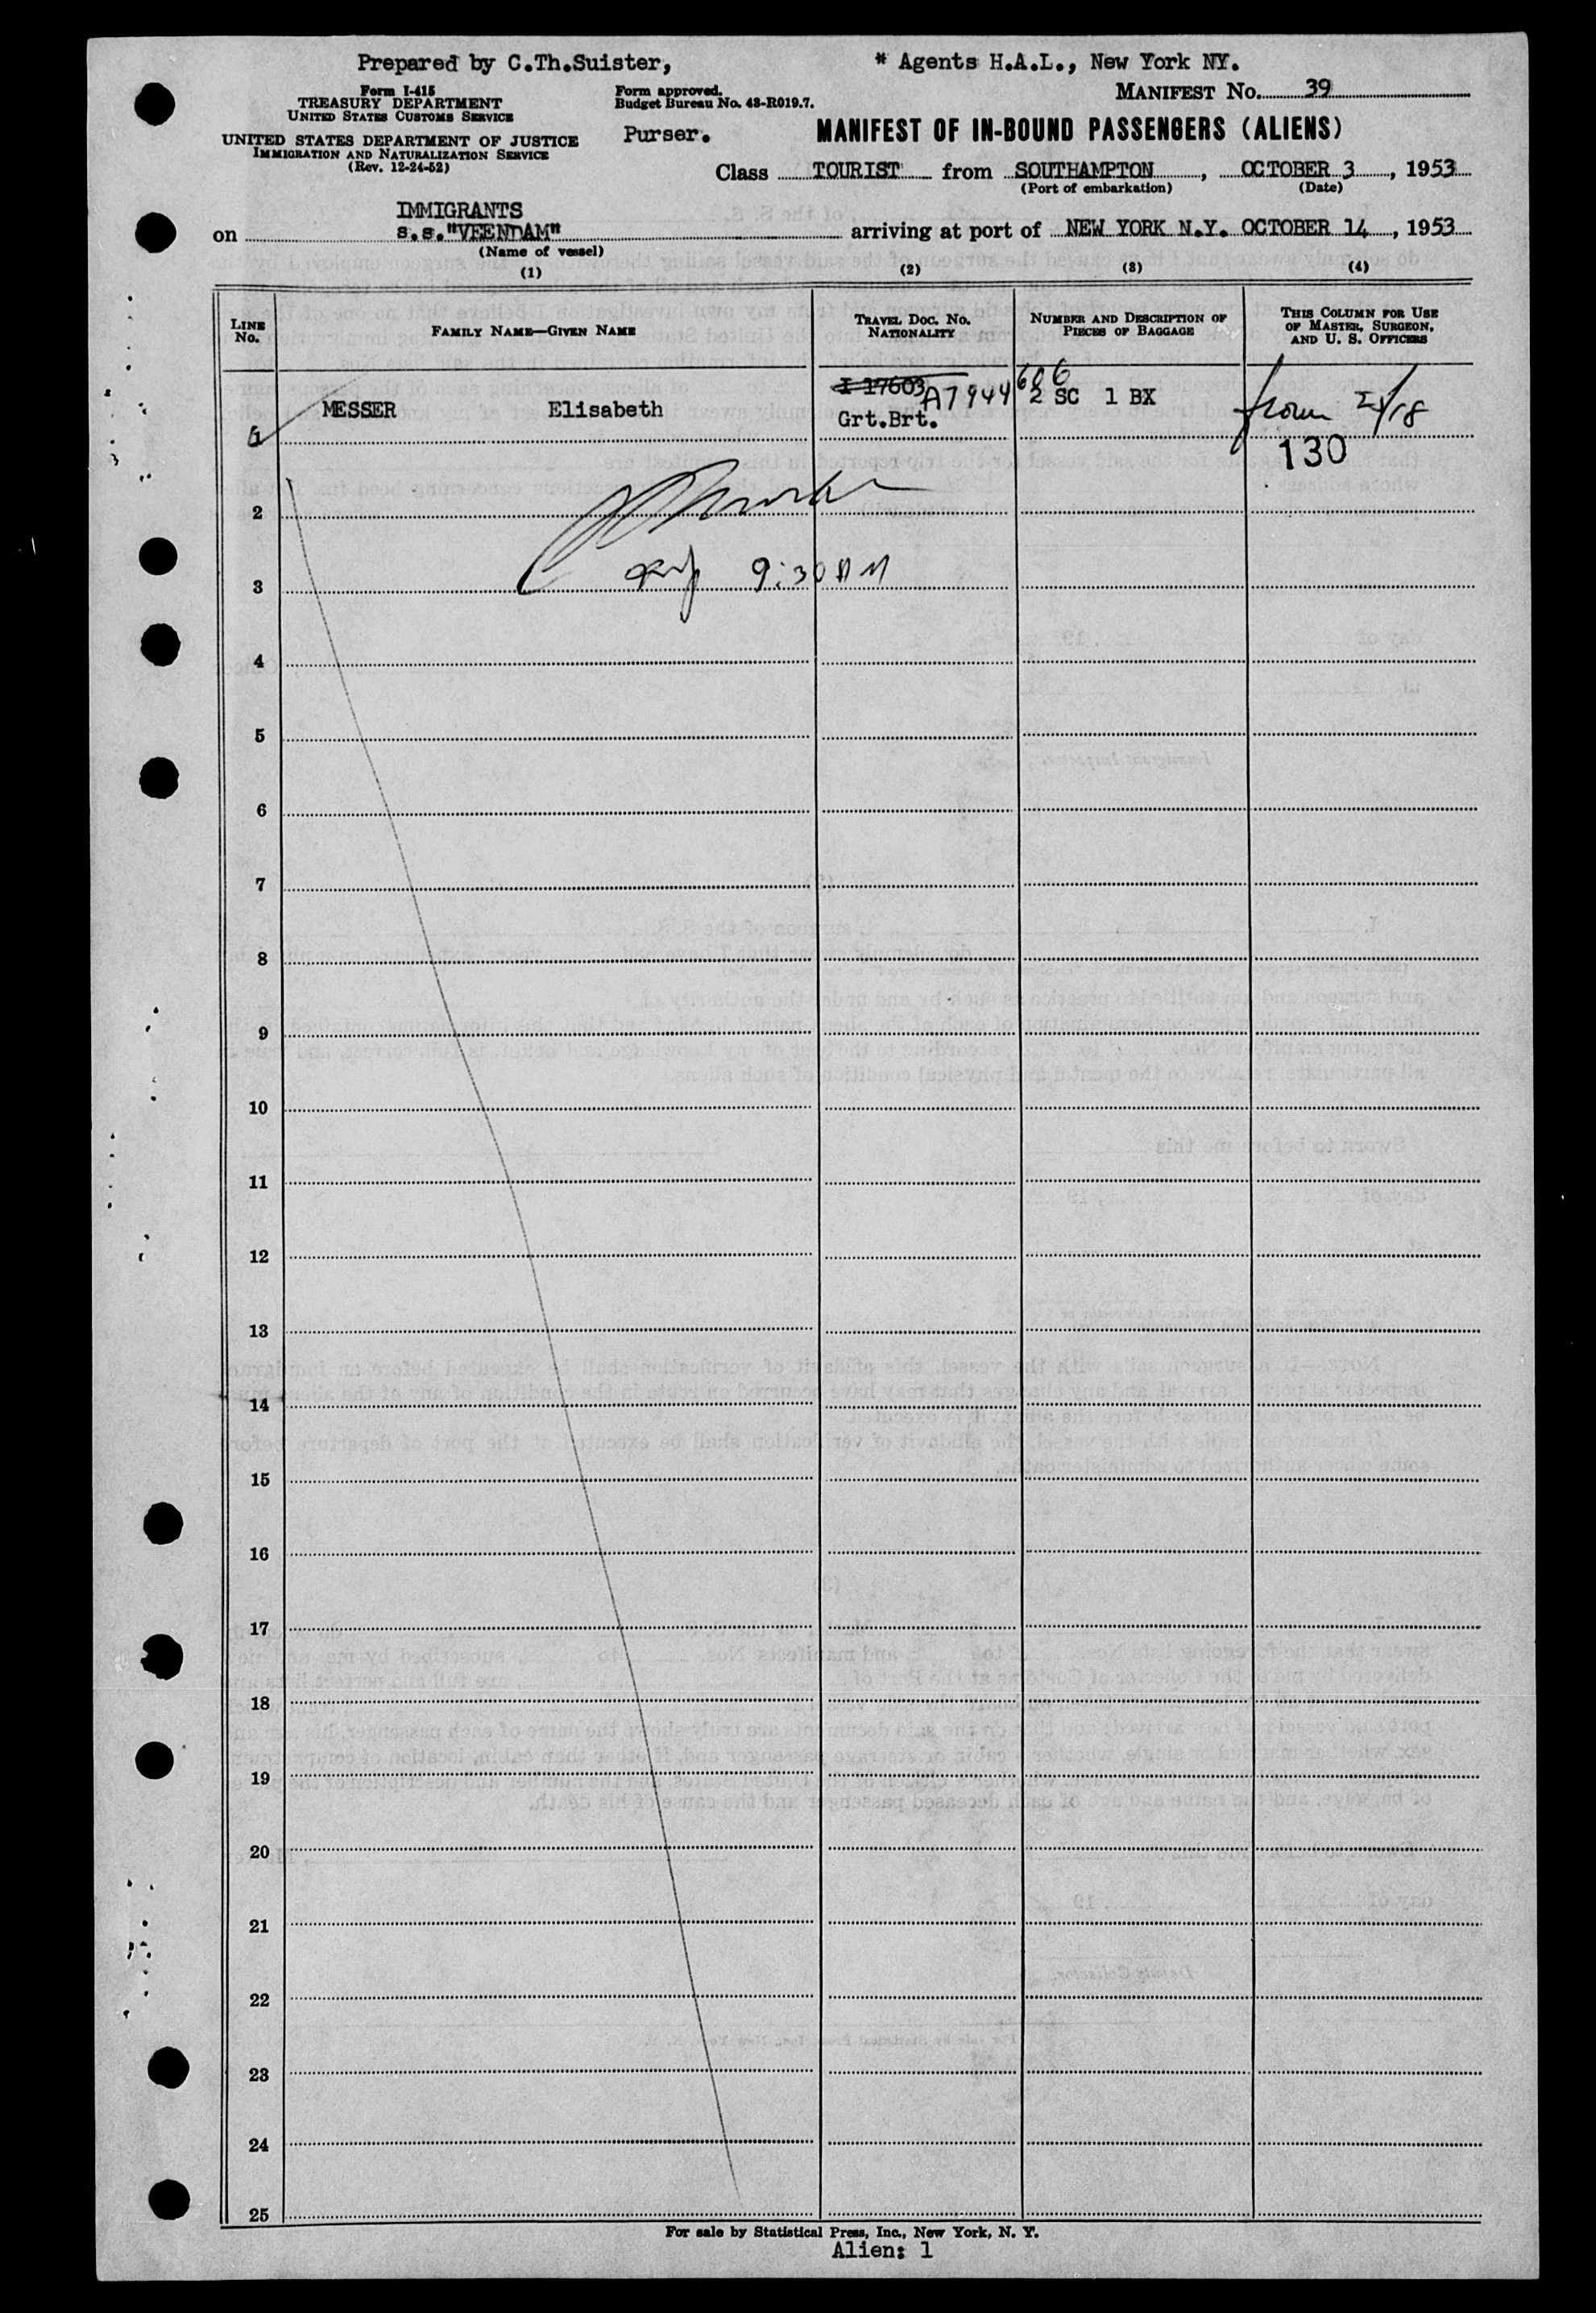 Prepared by C.Th.Suister,
* Agents H.A.L., New York NY.
Form I-415
TREASURY DEPARTMENT
UNITED STATES CUSTOMS SERVICE
UNITED STATES DEPARTMENT OF JUSTICE
IMMIGRATION AND NATURALIZATION SERVICE
(Rev. 12-24-52)
Form approved.
Budget Bureau No. 43-R019.7.
Purser.
MANIFEST No. 39
MANIFEST OF IN-BOUND PASSENGERS (ALIENS)
Class TOURIST from SOUTHAMPTON, OCTOBER 3, 1953
(Port of embarkation) (Date)
IMMIGRANTS
on s.s."VEENDAM" arriving at port of NEW YORK N.Y. OCTOBER 14, 1953
(Name of vessel)
(1) (2) (3) (4)
LINE No.
FAMILY NAME—GIVEN NAME
TRAVEL DOC. NO.
NATIONALITY
NUMBER AND DESCRIPTION OF
PIECES OF BAGGAGE
THIS COLUMN FOR USE
OF MASTER, SURGEON,
AND U. S. OFFICERS
I 17603 A7944606
MESSER Elisabeth 2 SC 1 BX
Grt.Brt.
1
130
2
9:30 AM
3
4
5
6
7
8
9
10
11
12
13
14
15
16
17
18
19
20
21
22
23
24
25
For sale by Statistical Press, Inc., New York, N. Y.
Alien: 1